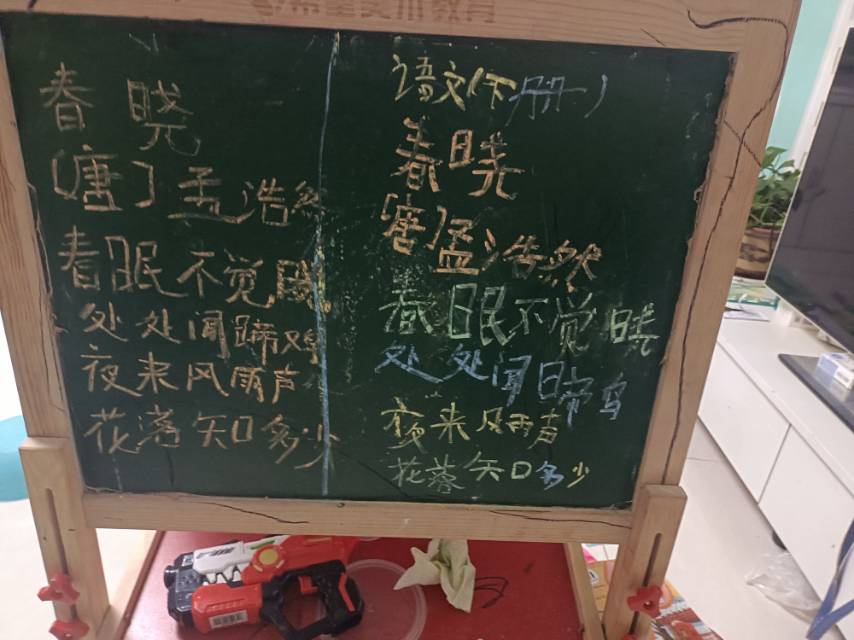 春晓
[唐]孟浩然
春眠不觉晓
处处闻蹄鸡
夜来风雨声
花落知多少
语文(下册一)
春晓
唐孟浩然
春眠不觉晓
处处闻啼鸟
夜来风雨声
花落知多少